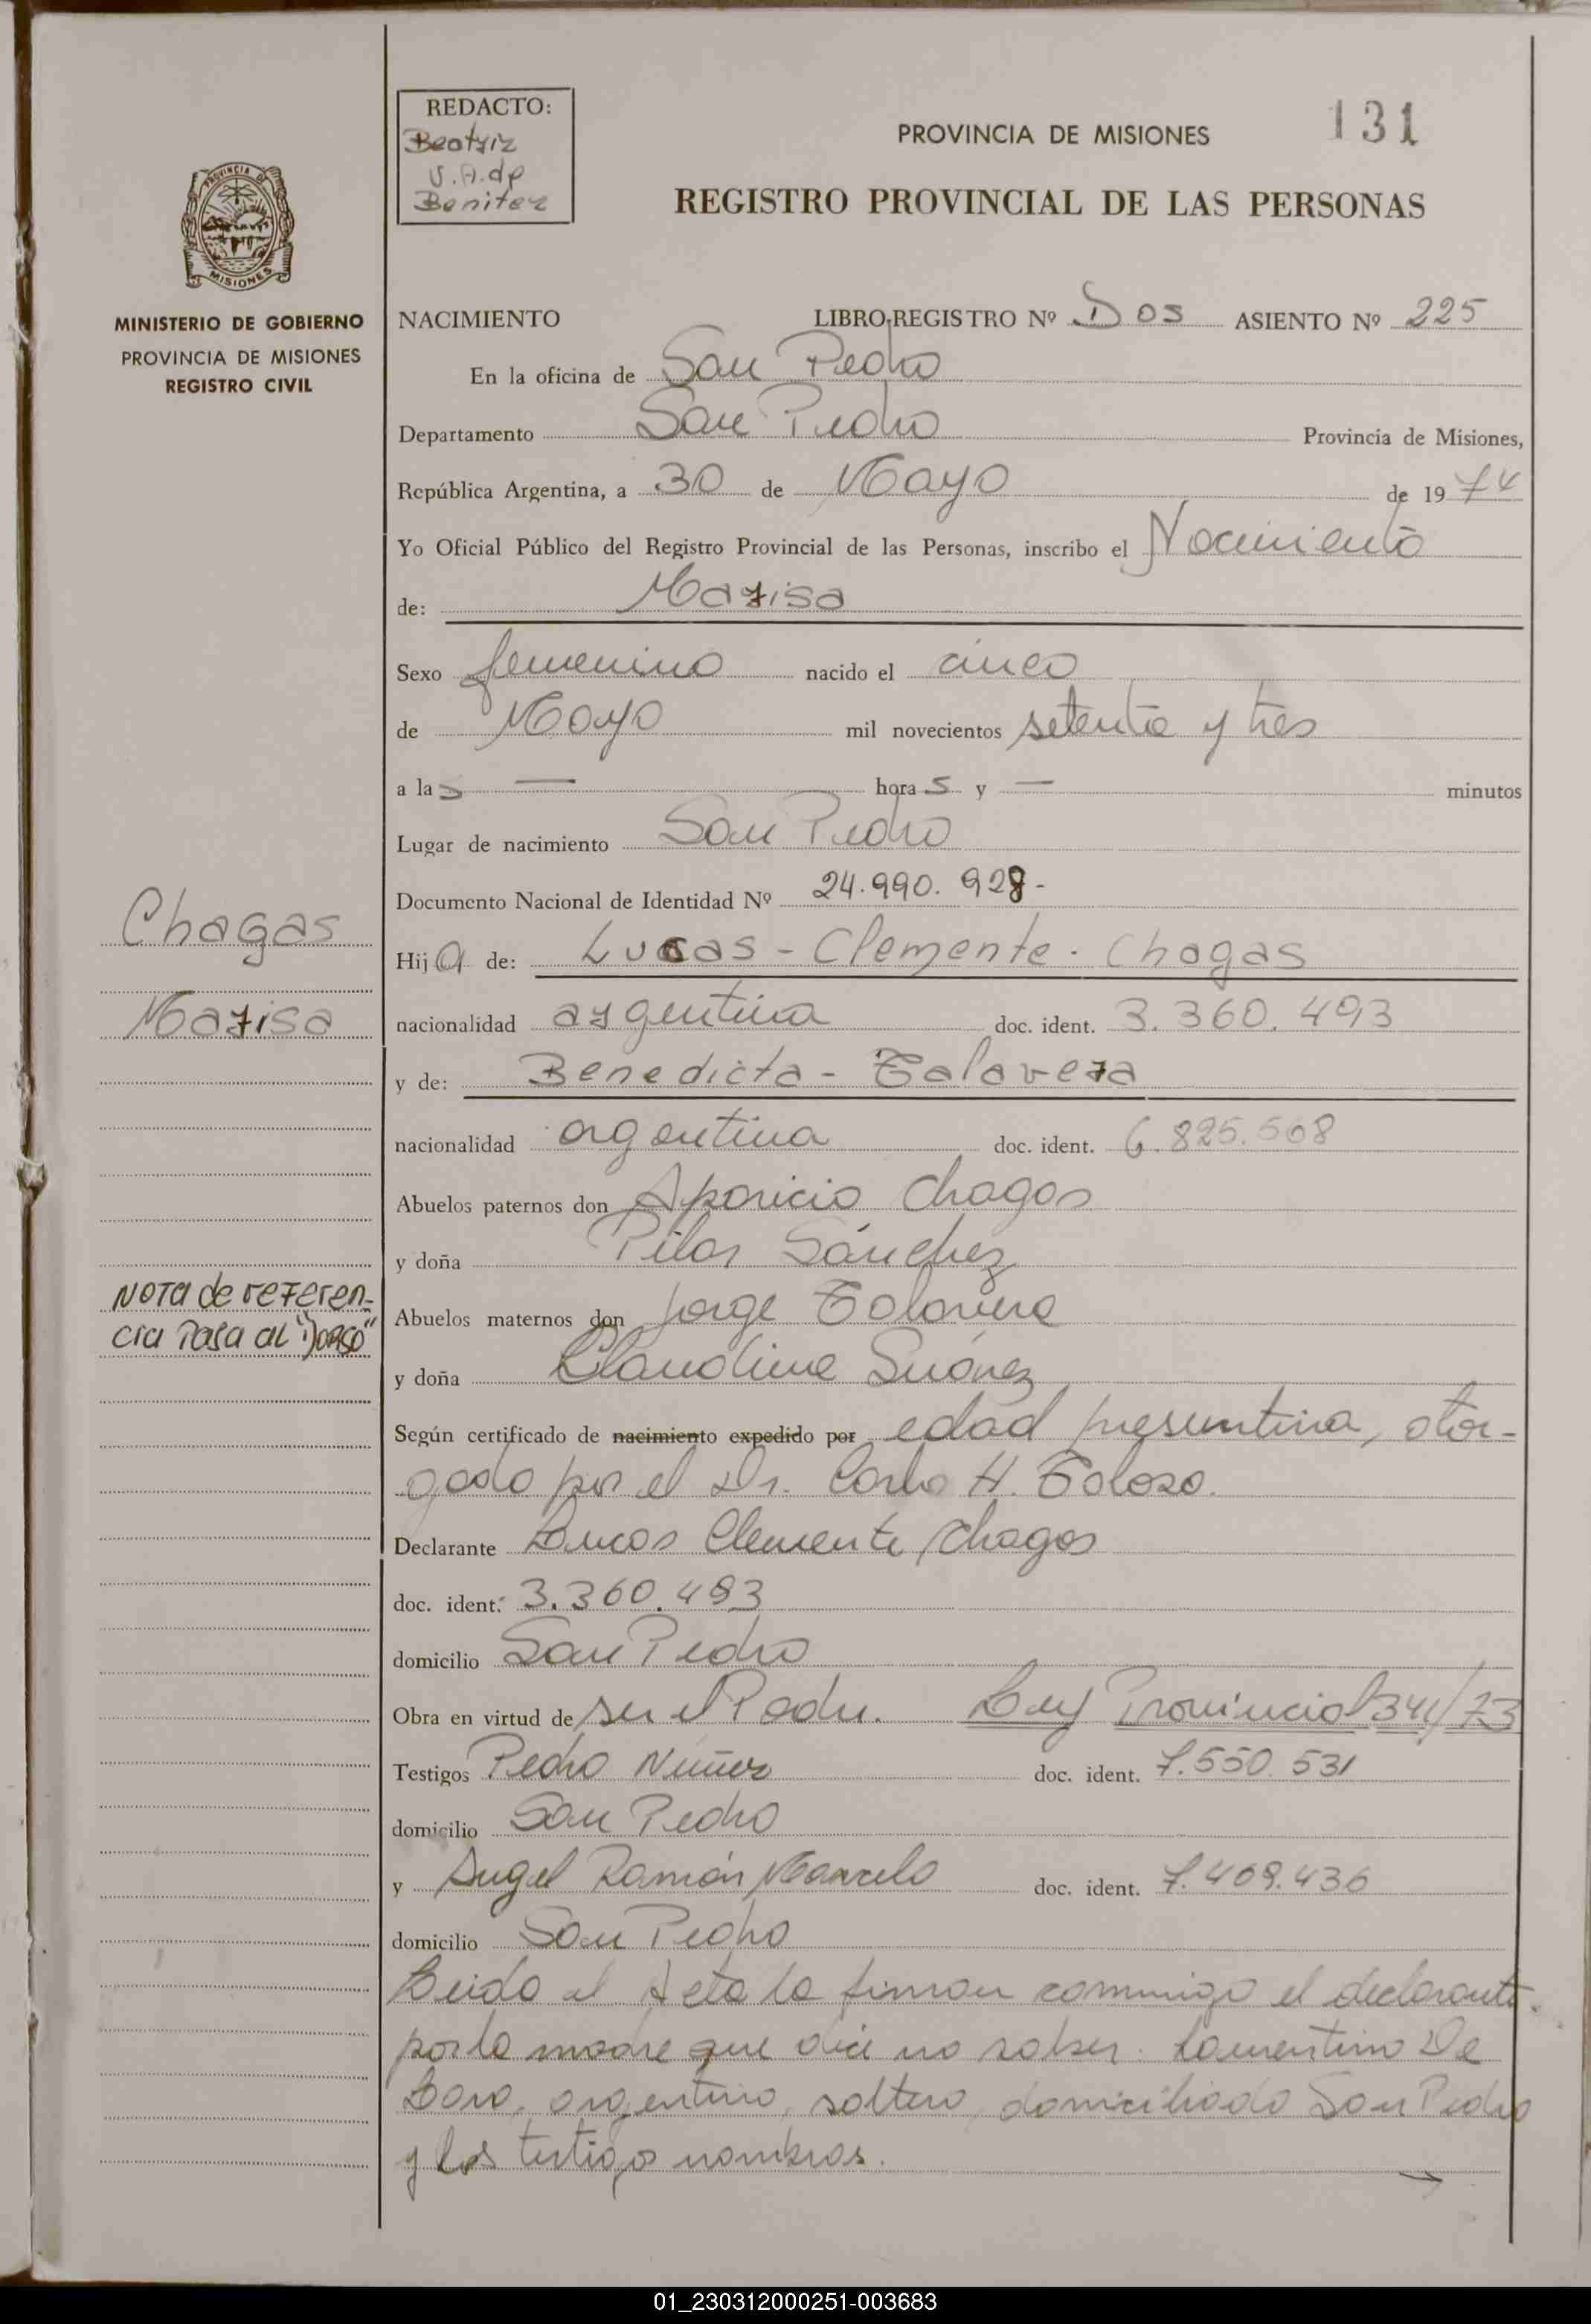 REDACTO:
Beatriz
V.A.de
Benitez
PROVINCIA DE MISIONES
131
REGISTRO PROVINCIAL DE LAS PERSONAS
PROVINCIA DE
MISIONES
MINISTERIO DE GOBIERNO
PROVINCIA DE MISIONES
REGISTRO CIVIL
NACIMIENTO LIBRO-REGISTRO Nº Dos ASIENTO Nº 225
En la oficina de San Pedro
Departamento San Pedro Provincia de Misiones,
República Argentina, a 30 de Mayo de 1974
Yo Oficial Público del Registro Provincial de las Personas, inscribo el Nacimiento
de: Marisa
Sexo femenino nacido el cinco
de Mayo mil novecientos setenta y tres
a las — horas y — minutos
Lugar de nacimiento San Pedro
Documento Nacional de Identidad Nº 24.990.928-
Chagas
Hija de: Lucas - Clemente - Chagas
Marisa
nacionalidad argentina doc. ident. 3.360.493
y de: Benedicta - Talavera
nacionalidad argentina doc. ident. 6.825.508
Abuelos paternos don Aparicio Chagas
y doña Pilar Sánchez
Nota de referen-
cia Pasa al "Dorso"
Abuelos maternos don Jorge Talavera
y doña Claudina Suárez
Según certificado de nacimiento expedido por edad presuntiva, otor-
gado por el Dr. Carlos H. Toloza.
Declarante Lucas Clemente Chagas
doc. ident: 3.360.493
domicilio San Pedro
Obra en virtud de ser el Padre. Ley Provincial 341/73
Testigos Pedro Nuñez doc. ident. 7.550.531
domicilio San Pedro
y Angel Ramón Marcelo doc. ident. 7.409.436
domicilio San Pedro
Leida el Acta la firman conmigo el declarante.
por la madre que dice no saber. Lamentino De
Lara, argentino, soltero, domiciliado San Pedro
y los testigos nombras.
01_230312000251-003683